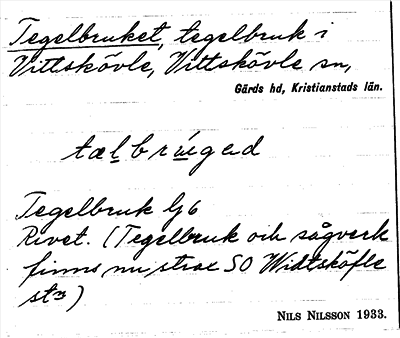 Tegelbruket, tegelbruk i
Vittskövle, Vittskövle sn,
Gärds hd, Kristianstads län.
Tegelbruk lj 6
Rivet. (Tegelbruk och sågverk
finns nu strax SO Widtsköfle
stn)
NILS NILSSON 1933.